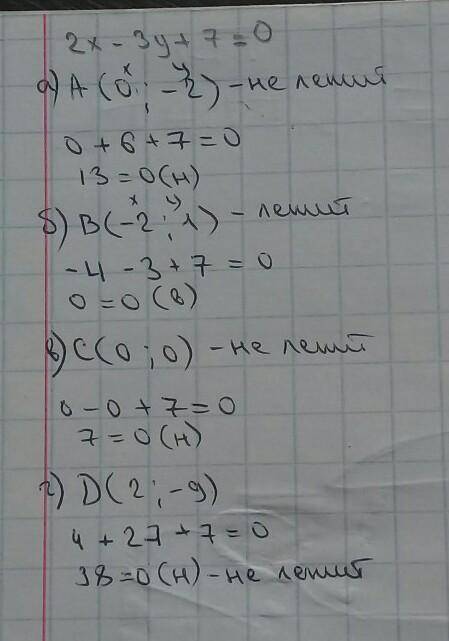 2x - 3y + 7 = 0
x y
а) A(0 ; -2) - не лежит
0 + 6 + 7 = 0
13 = 0 (н)
x y
б) B(-2 ; 1) - лежит
-4 - 3 + 7 = 0
0 = 0 (в)
в) C(0 ; 0) - не лежит
0 - 0 + 7 = 0
7 = 0 (н)
г) D(2 ; -9)
4 + 27 + 7 = 0
38 = 0 (н) - не лежит